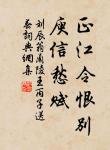 正江令恨别
庾信愁赋
刘辰翁兰陵王丙子送
春词典网集